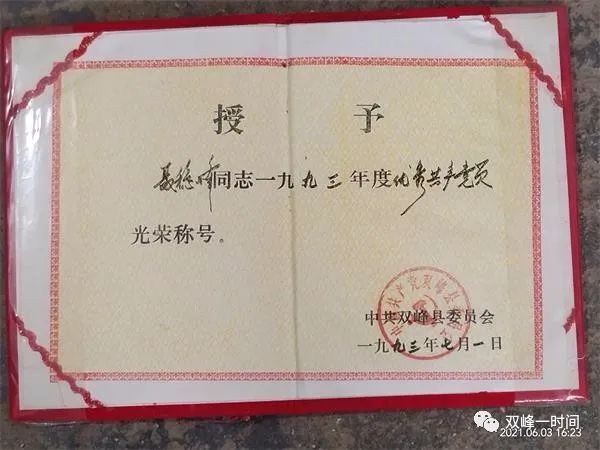 授予
聂稳峰同志一九九三年度优秀共产党员
光荣称号。
中国共产党双峰县委员会
中共双峰县委员会
一九九三年七月一日
双峰一时间
2021.06.03 16:23